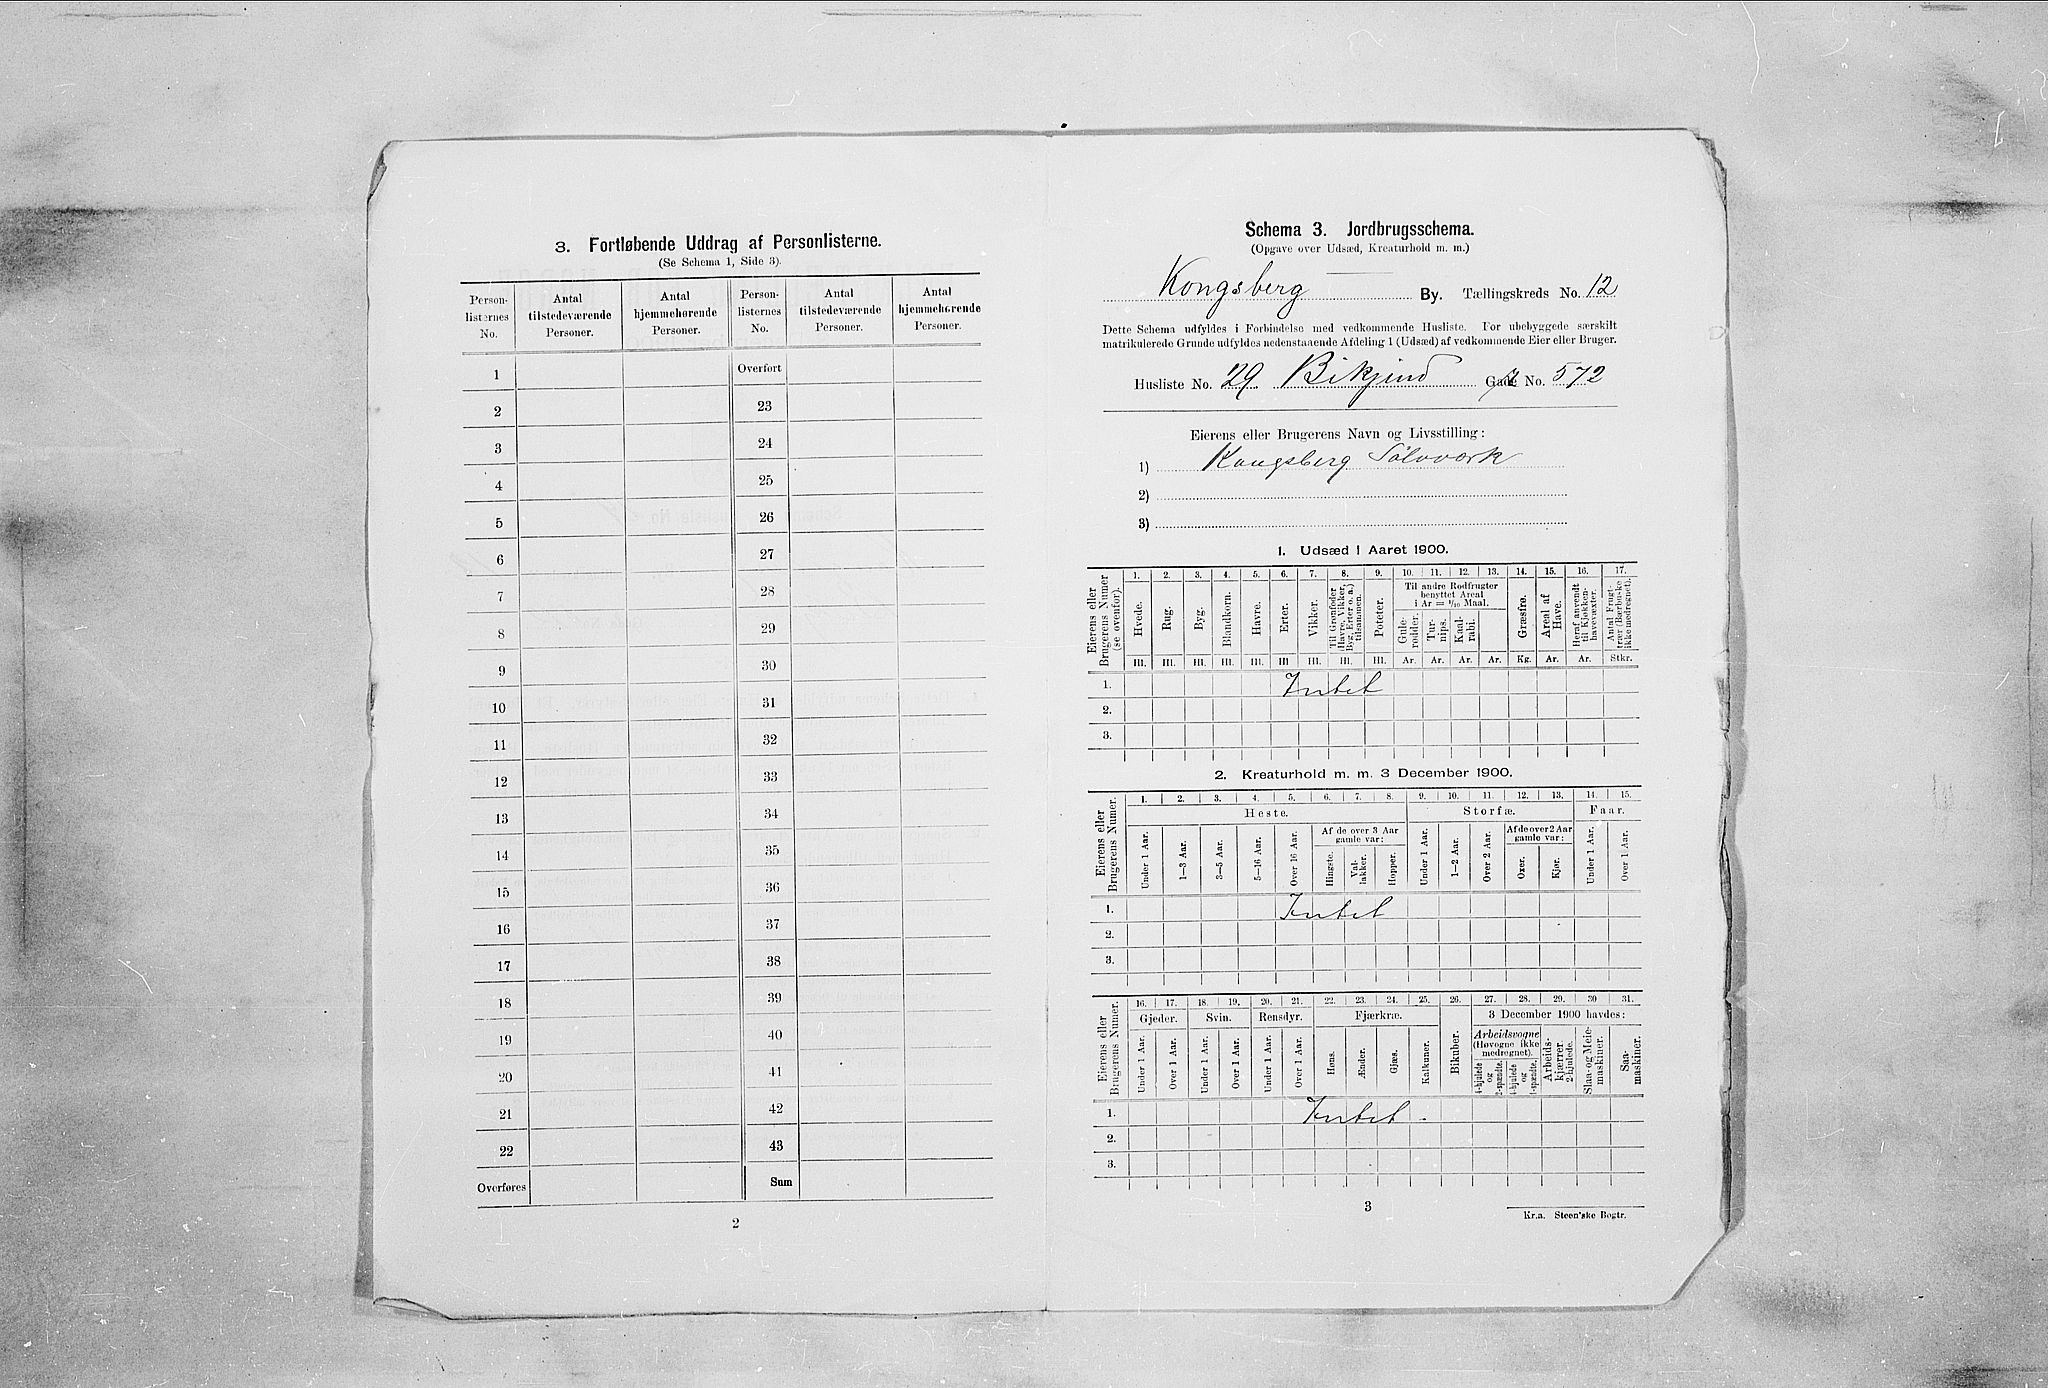 3. Fortløbende Uddrag af Personlisterne.
(Se Schema 1, Side 3).
Person-listernes No. Antal tilstedeværende Personer. Antal hjemmehørende Personer. Person-listernes No. Antal tilstedeværende Personer. Antal hjemmehørende Personer.
1 Overført
2 23
3 24
4 25
5 26
6 27
7 28
8 29
9 30
10 31
11 32
12 33
13 34
14 35
15 36
16 37
17 38
18 39
19 40
20 41
21 42
22 43
Overføres Sum
2
Schema 3. Jordbrugsschema.
(Opgave over Udsæd, Kreaturhold m. m.)
Kongsberg By. Tællingskreds No. 12
Dette Schema udfyldes i Forbindelse med vedkommende Husliste. For ubebyggede særskilt
matrikulerede Grunde udfyldes nedenstaaende Afdeling 1 (Udsæd) af vedkommende Eier eller Bruger.
Husliste No. 29 Gade No. 572
Eierens eller Brugerens Navn og Livsstilling:
1) Kongsberg Sølvværk
2)
3)
1. Udsæd i Aaret 1900.
1. 2. 3. 4. 5. 6. 7. 8. 9. 10. 11. 12. 13. 14. 15. 16. 17.
Eierens eller Brugerens Numer (se ovenfor).
Hvede. Rug. Byg. Blandkorn. Havre. Erter. Vikker. Til Grønfoder (Havre, Vikker, Byg, Erter o. a.) tilsammen. Poteter.
Til andre Rodfrugter benyttet Areal i Ar = 1/10 Maal.
Gule-rødder. Tur-nips. Kaal-rabi. Græsfrø. Areal af Have. Heraf anvendt til Kjøkken-havevæxter. Antal Frugt-trær (Bærbuske ikke medregnet).
Hl. Hl. Hl. Hl. Hl. Hl. Hl. Hl. Hl. Ar. Ar. Ar. Ar. Kg. Ar. Ar. Stkr.
1. Intet
2.
3.
2. Kreaturhold m. m. 3 December 1900.
1. 2. 3. 4. 5. 6. 7. 8. 9. 10. 11. 12. 13. 14. 15.
Eierens eller Brugerens Numer.
Heste. Storfæ. Faar.
Under 1 Aar. 1—3 Aar. 3—5 Aar. 5—16 Aar. Over 16 Aar. Af de over 3 Aar gamle var: Hingste. Val-lakker. Hopper. Under 1 Aar. 1—2 Aar. Over 2 Aar. Af de over 2 Aar gamle var: Oxer. Kjør. Under 1 Aar. Over 1 Aar.
1. Intet
2.
3.
16. 17. 18. 19. 20. 21. 22. 23. 24. 25. 26. 27. 28. 29. 30 31.
Eierens eller Brugerens Numer.
Gjeder. Svin. Rensdyr. Fjærkræ. Bikuber. 3 December 1900 havdes:
Under 1 Aar. Over 1 Aar. Under 1 Aar. Over 1 Aar. Under 1 Aar. Over 1 Aar. Høns. Ænder. Gjæs. Kalkuner. Arbeidsvogne (Høvogne ikke medregnet). 4-hjulede og 2-spændte. 4-hjulede og 1-spændte. Arbeids-kjærrer 2-hjulede. Slaa- og Meie-maskiner. Saa-maskiner.
1. Intet.
2.
3.
3
Kr.a. Steen'ske Bogtr.